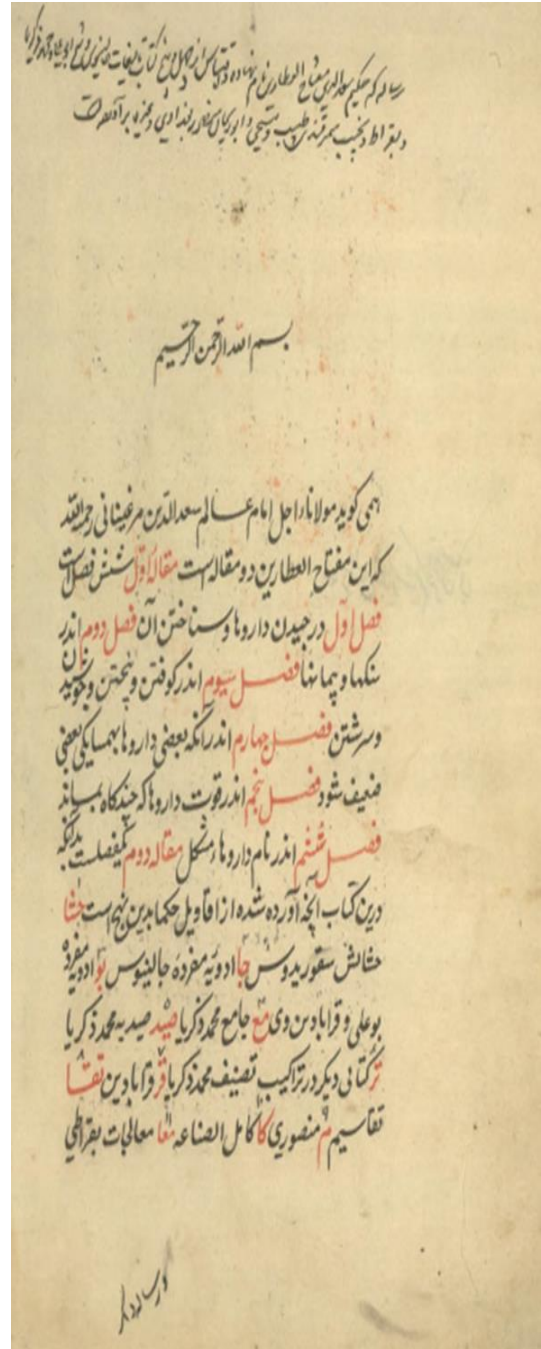 رساله که حکیم سعد الدین مفتاح العطارین نام نهاده و اقتباس از چهل و پنج کتاب
و بقراط و نجیب سمرقندی طبیب و مسیحی و ابوریحان بغدادی
بسم الله الرحمن الرحیم
همی کوید مولانا اجل امام عالم سعد الدین مرغینانی رحمه الله
که این مفتاح العطارین دو مقاله است مقاله اول شش فصل است
فصل اول در چیدن داروها و شناختن آن فصل دوم اندر
سنکها و پیمانها فصل سیوم اندر کوفتن و پختن و جوشیدن
و سرشتن فصل چهارم اندر آنکه بعضی داروها بهمسایکی بعضی
ضعیف شود فصل پنجم اندر قوت داروها که چند کاه بماند
فصل ششم اندر نام داروهاء مشکل مقاله دوم یکفصلست بدانکه
درین کتاب آنچه آورده شده از اقاویل حکما بدین نهج است حشا
حشائش سقوریدوس جا ادویه مفردهٔ جالینوس بو ادویه مفردهٔ
بوعلی و قرابادین وی مع جامع محمد زکریا صید صیدیه محمد زکریا
تر کتابی دیکر در تراکیب تصنیف محمد زکریا قر قرابادین تقا
تقاسیم م منصوری کا کامل الصناعه معا معالجات بقراطی